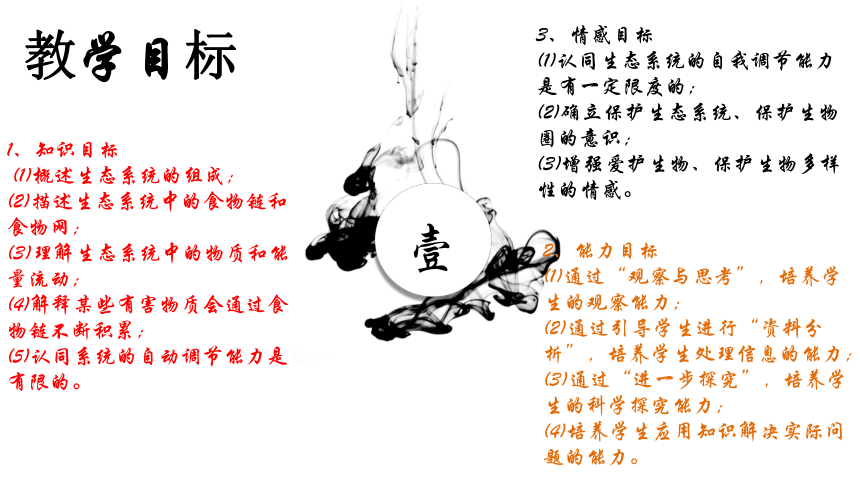 教学目标
1、知识目标
(1)概述生态系统的组成；
(2)描述生态系统中的食物链和
食物网；
(3)理解生态系统中的物质和能
量流动；
(4)解释某些有害物质会通过食
物链不断积累；
(5)认同系统的自动调节能力是
有限的。
壹
3、情感目标
(1)认同生态系统的自我调节能力
是有一定限度的；
(2)确立保护生态系统、保护生物
圈的意识；
(3)增强爱护生物、保护生物多样
性的情感。
2、能力目标
(1)通过“观察与思考”，培养学
生的观察能力；
(2)通过引导学生进行“资料分
析”，培养学生处理信息的能力；
(3)通过“进一步探究”，培养学
生的科学探究能力；
(4)培养学生应用知识解决实际问
题的能力。